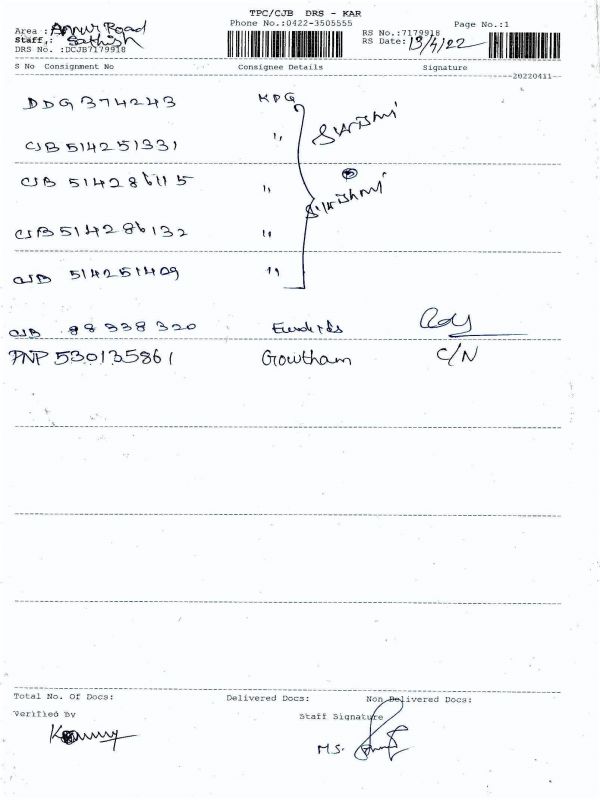 TPC/CJB DRS - KAR
Phone No.:0422-3505555 Page No.:1
Area : Annur Road RS No.:7179918
Staff,: Sathish RS Date: 13/4/22
DRS No. :DCJB7179918
S No Consignment No Consignee Details Signature
20220411
DDG 374243 KPG
CJB 514251331 "
CJB 514286115 "
CJB 514286132 "
CJB 514251409 "
CJB 88938320
PNP 530135861 Gowtham C/N
Total No. Of Docs: Delivered Docs: Non Delivered Docs:
Verified By Staff Signature
M.S.